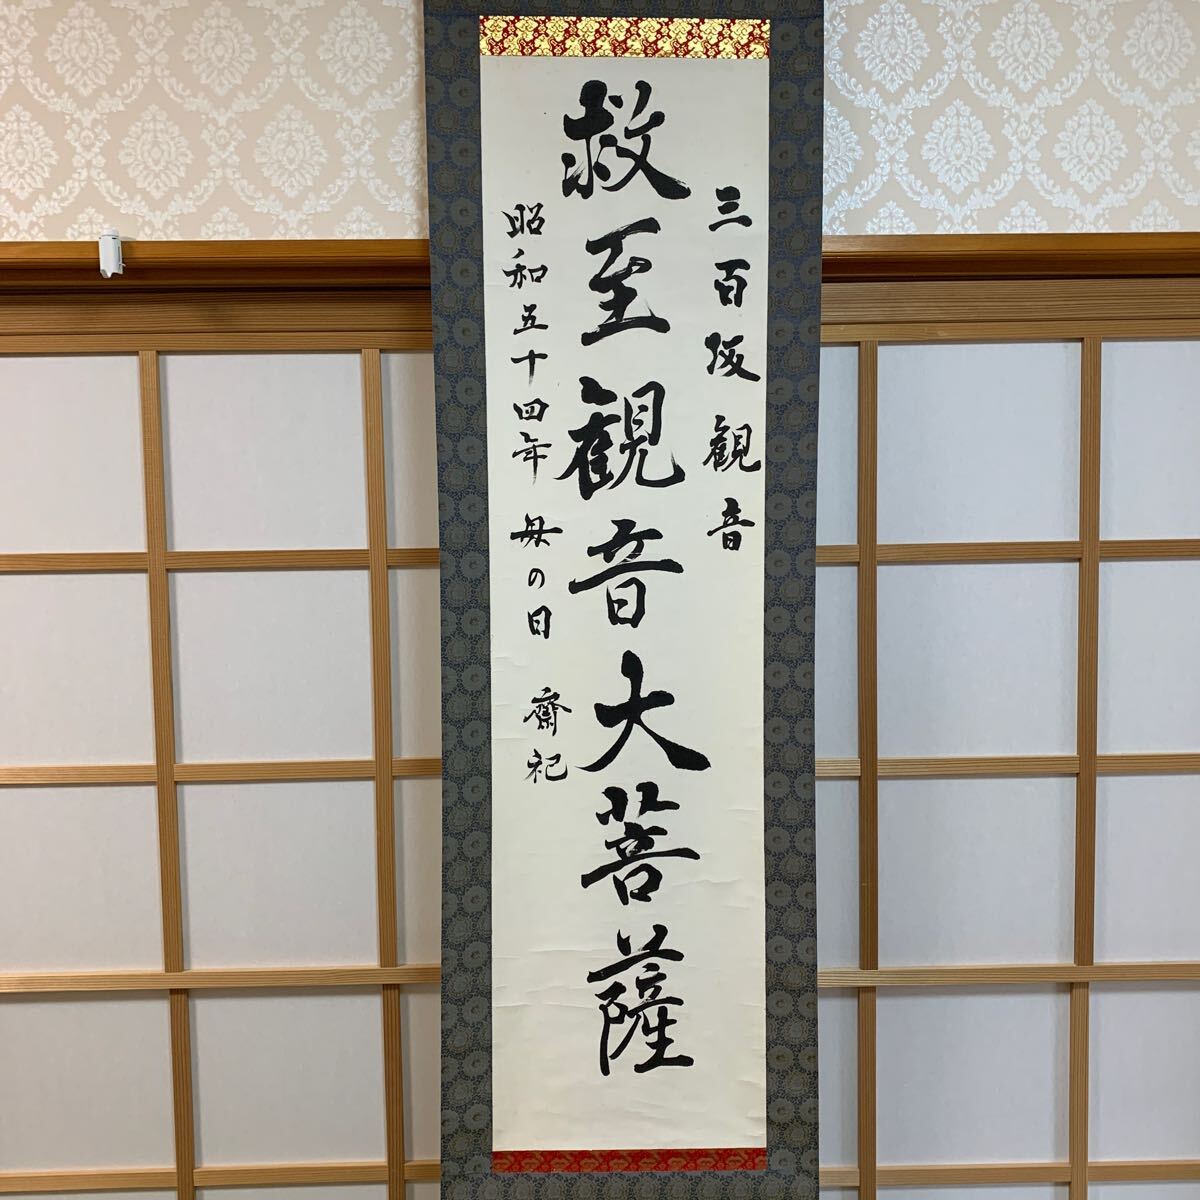 三百坂観音
救至観音大菩薩
昭和五十四年 母の日 齋祀